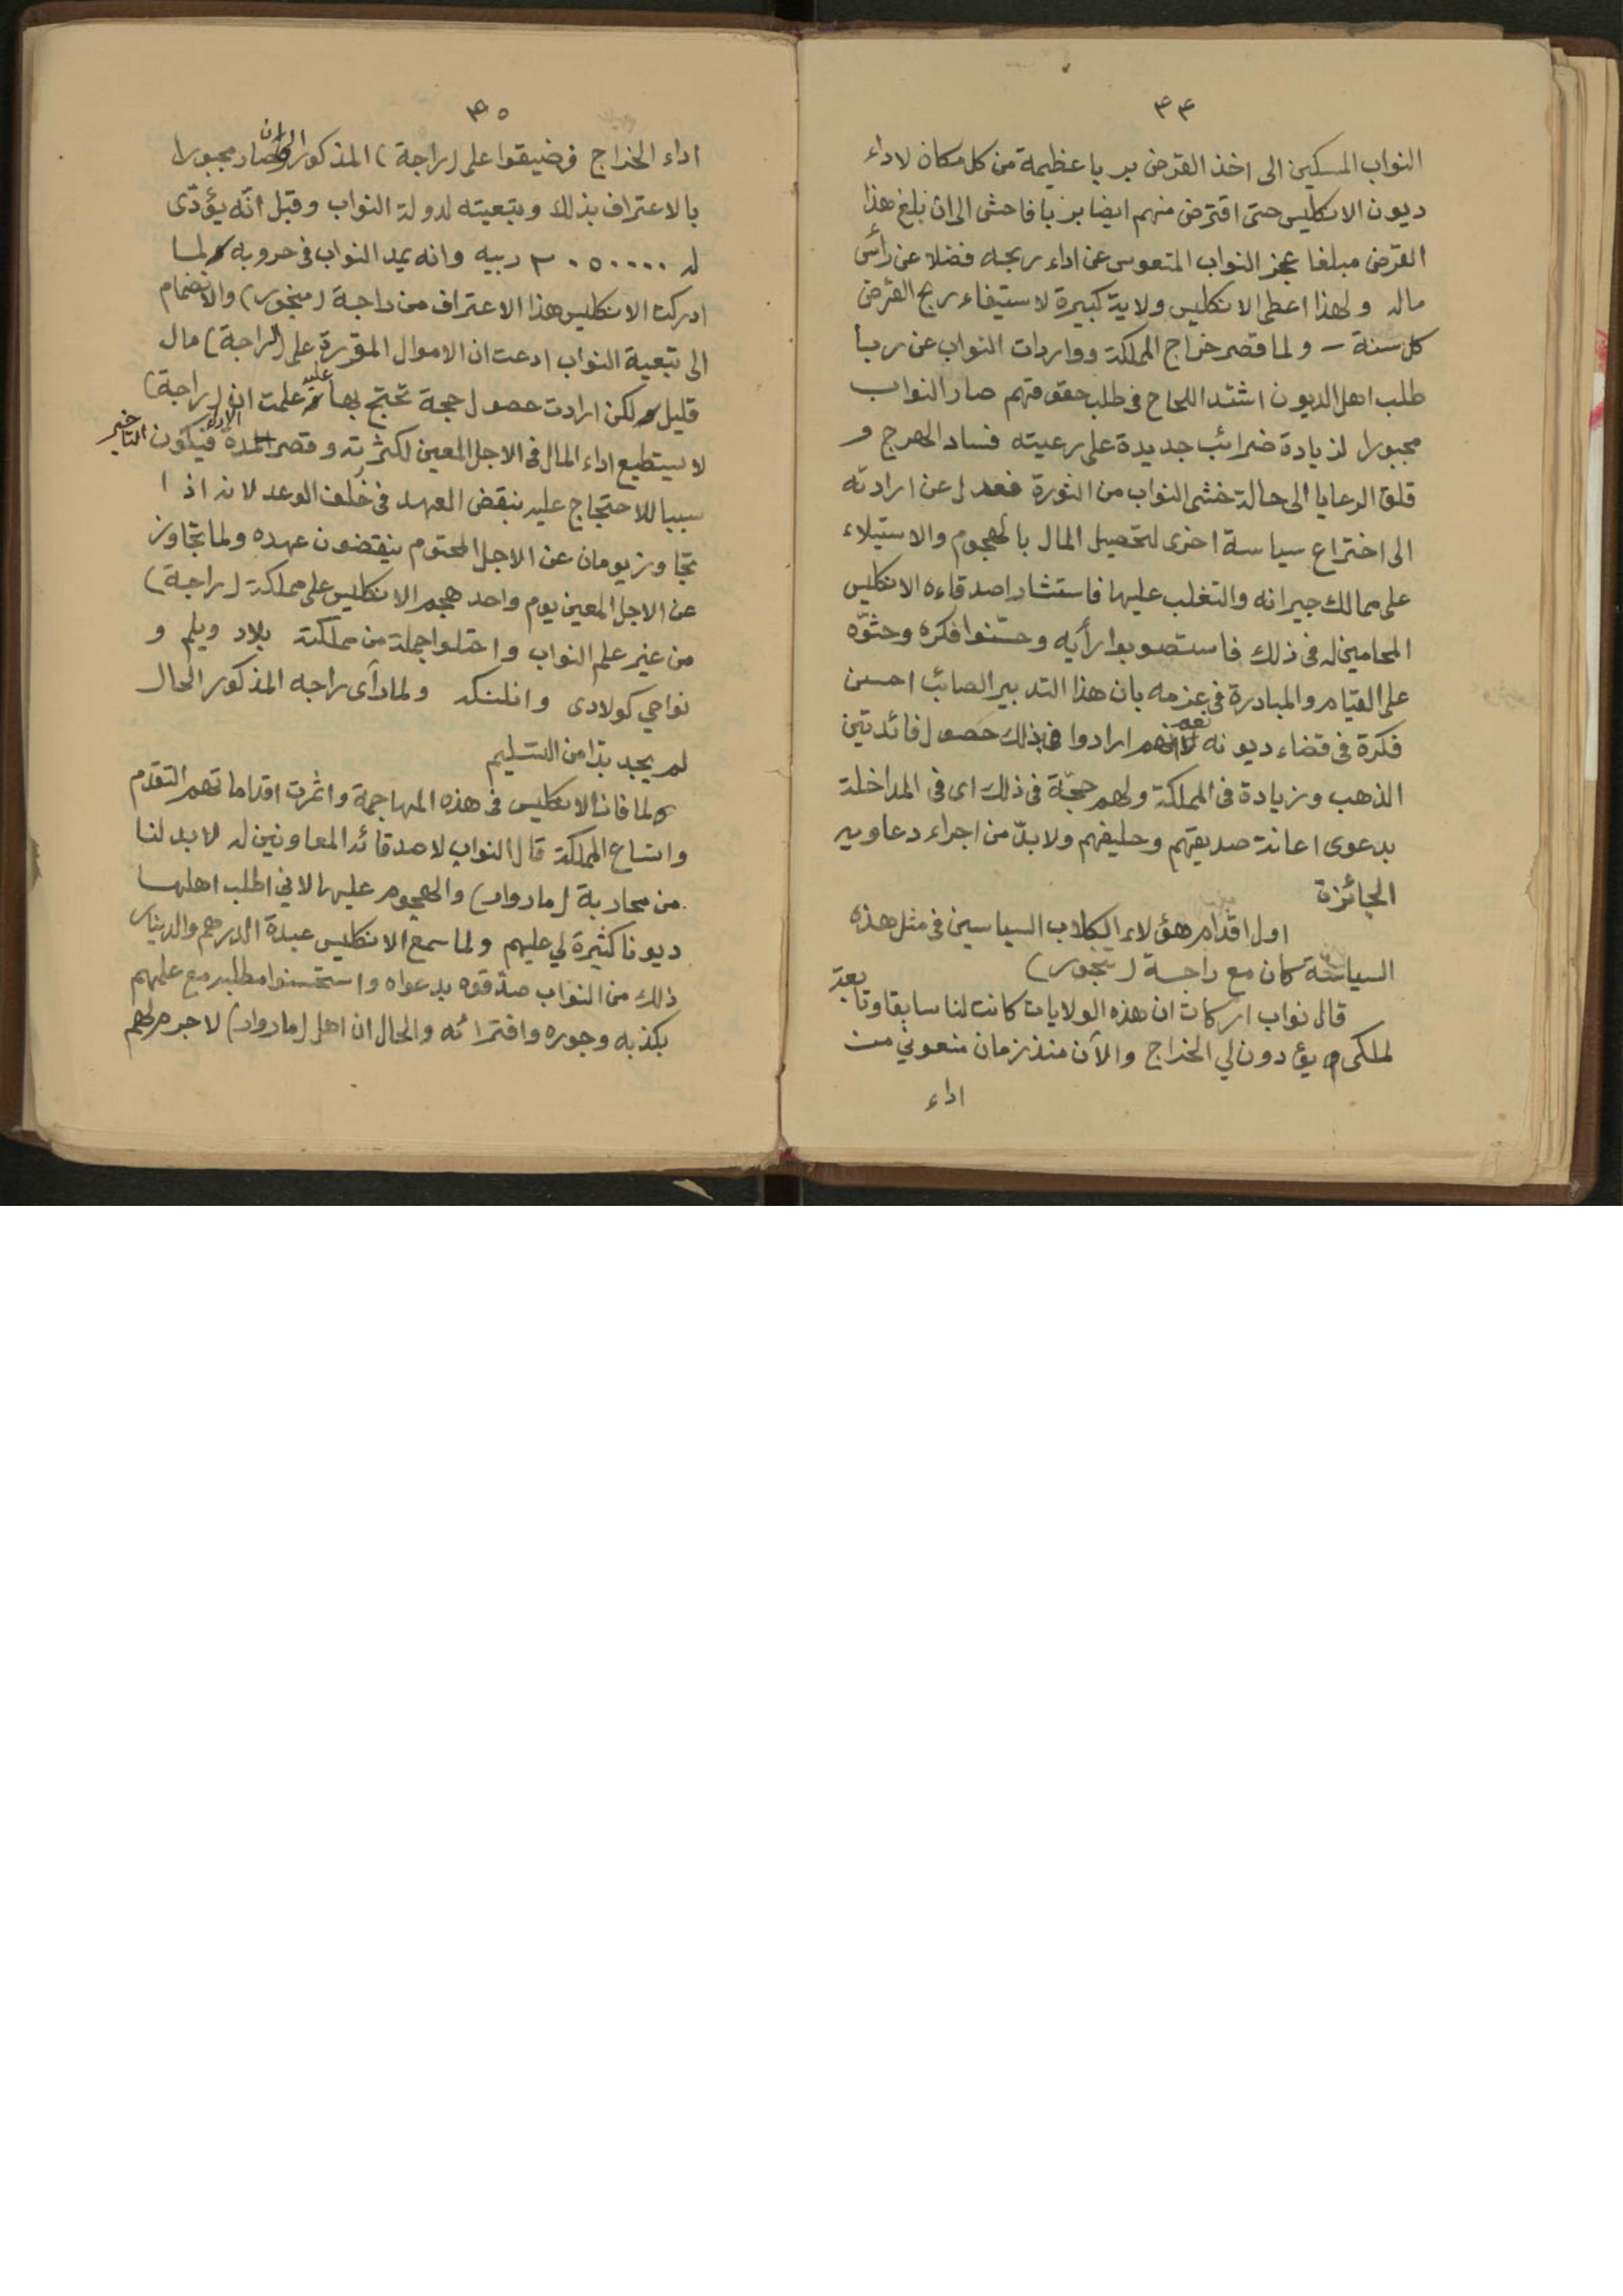 ٤٤
النواب المسكين الى اخذ القرض بربا عظيمة من كل مكان لاداء
ديون الانكليس حتى اقترض منهم ايضا بربا فاحش الى ان بلغ هذا
القرض مبلغا عجز النواب المتعوس عن اداء ربحه فضلا عن رأس
ماله ولهذا اعطى الانكليس ولاية كبيرة لاستيفاء ربح القرض
كل سنة – ولما قصر خراج المملكة وواردات النواب عن ربا
طلب اهل الديون اشتد اللحاح فى طلب حقوقهم صار النواب
مجبورا لزيادة ضرائب جديدة على رعيته فساد الهرج و
قلق الرعايا الى حالة خشى النواب من الثورة فعدل عن ارادته
الى اختراع سياسة اخرى لتحصيل المال بالهجوم والاستيلاء
على ممالك جيرانه والتغلب عليها فاستشار اصدقاءه الانكليس
المحامين له فى ذلك فاستصوبوا رأيه وحسّنوا فكره وحثوّه
على القيام والمبادرة فى عزمه بان هذا التدبير الصائب احسن
فكرة فى قضاء ديونه ارادوا بذلك حصول فائدتين
الذهب وزيادة فى المملكة ولهم حجّة فى ذلك اى فى المداخلة
بدعوى اعانة صديقهم وحليفهم ولابدّ من اجراء دعاويه
الجائزة
اول اقدام هؤلاء الكلاب السياسين فى مثل هذه
السياسة كان مع راجة (تنجور)
قال نواب اركات ان هذه الولايات كانت لنا سابقا وتابعة
لملكى يؤدون لي الخراج والآن منذ زمان منعوني من
اداء
٤٥
اداء الخراج فضيقوا على (راجة) المذكور الى ان صار مجبورا
بالاعتراف بذلك وبتبعيته لدولة النواب وقبل انّه يؤدّى
له ٣٠٥٠٠٠٠ ربيه وانه يمد النواب فى حروبه ولما
ادركت الانكليس هذا الاعتراف من راجة (منجور) والانضمام
الى تبعية النواب ادعت ان الاموال المقررة على (الراجة) مال
قليل لكن ارادت حصول حجة تحتج بها عليه علمت ان (راجة)
لا يستطيع اداء المال فى الاجل المعين لكثرته وقصر المدة فيكون التأخير
سببا للاحتجاج عليه بنقض العهد فى خلف الوعد لانه اذا
تجاوز يومان عن الاجل المحتوم ينقضون عهده ولما تجاوز
عن الاجل المعين يوم واحد هجم الانكليس على مملكة (راجة)
من غير علم النواب واحتلوا جملة من مملكته بلاد ويلم و
نواحي كولادى وانلنكد ولما رآى راجه المذكور الحال
لم يجد بدّا من التسليم
ولما فاز الانكليس فى هذه المهاجمة واثمرت اقداماتهم التقدم
واتساع المملكة قال النواب لاصدقائه المعاونين له لا بد لنا
من محاربة (مادوار) والهجوم عليها لاني اطلب اهلها
ديونا كثيرة لي عليهم ولما سمع الانكليس عبدة الدرهم والدينار
ذلك من النواب صدّقوه بدعواه واستحسنوا مطلبه مع علمهم
بكذبه وجوره وافترائه والحال ان اهل (مادوار) لا جرم لهم